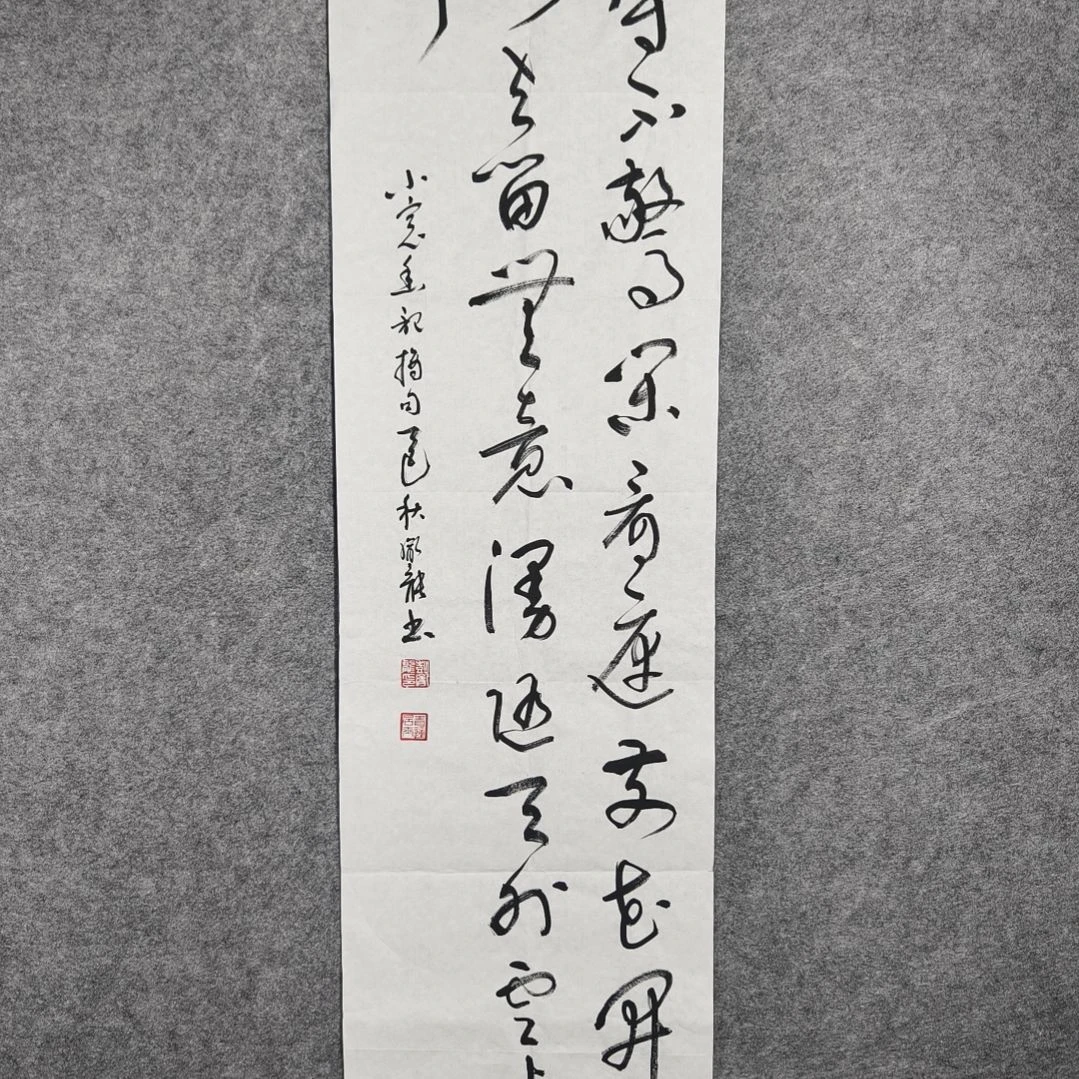 不驚閒看庭前花開
去留無意漫隨天外雲
小窗幽記摘句秋書